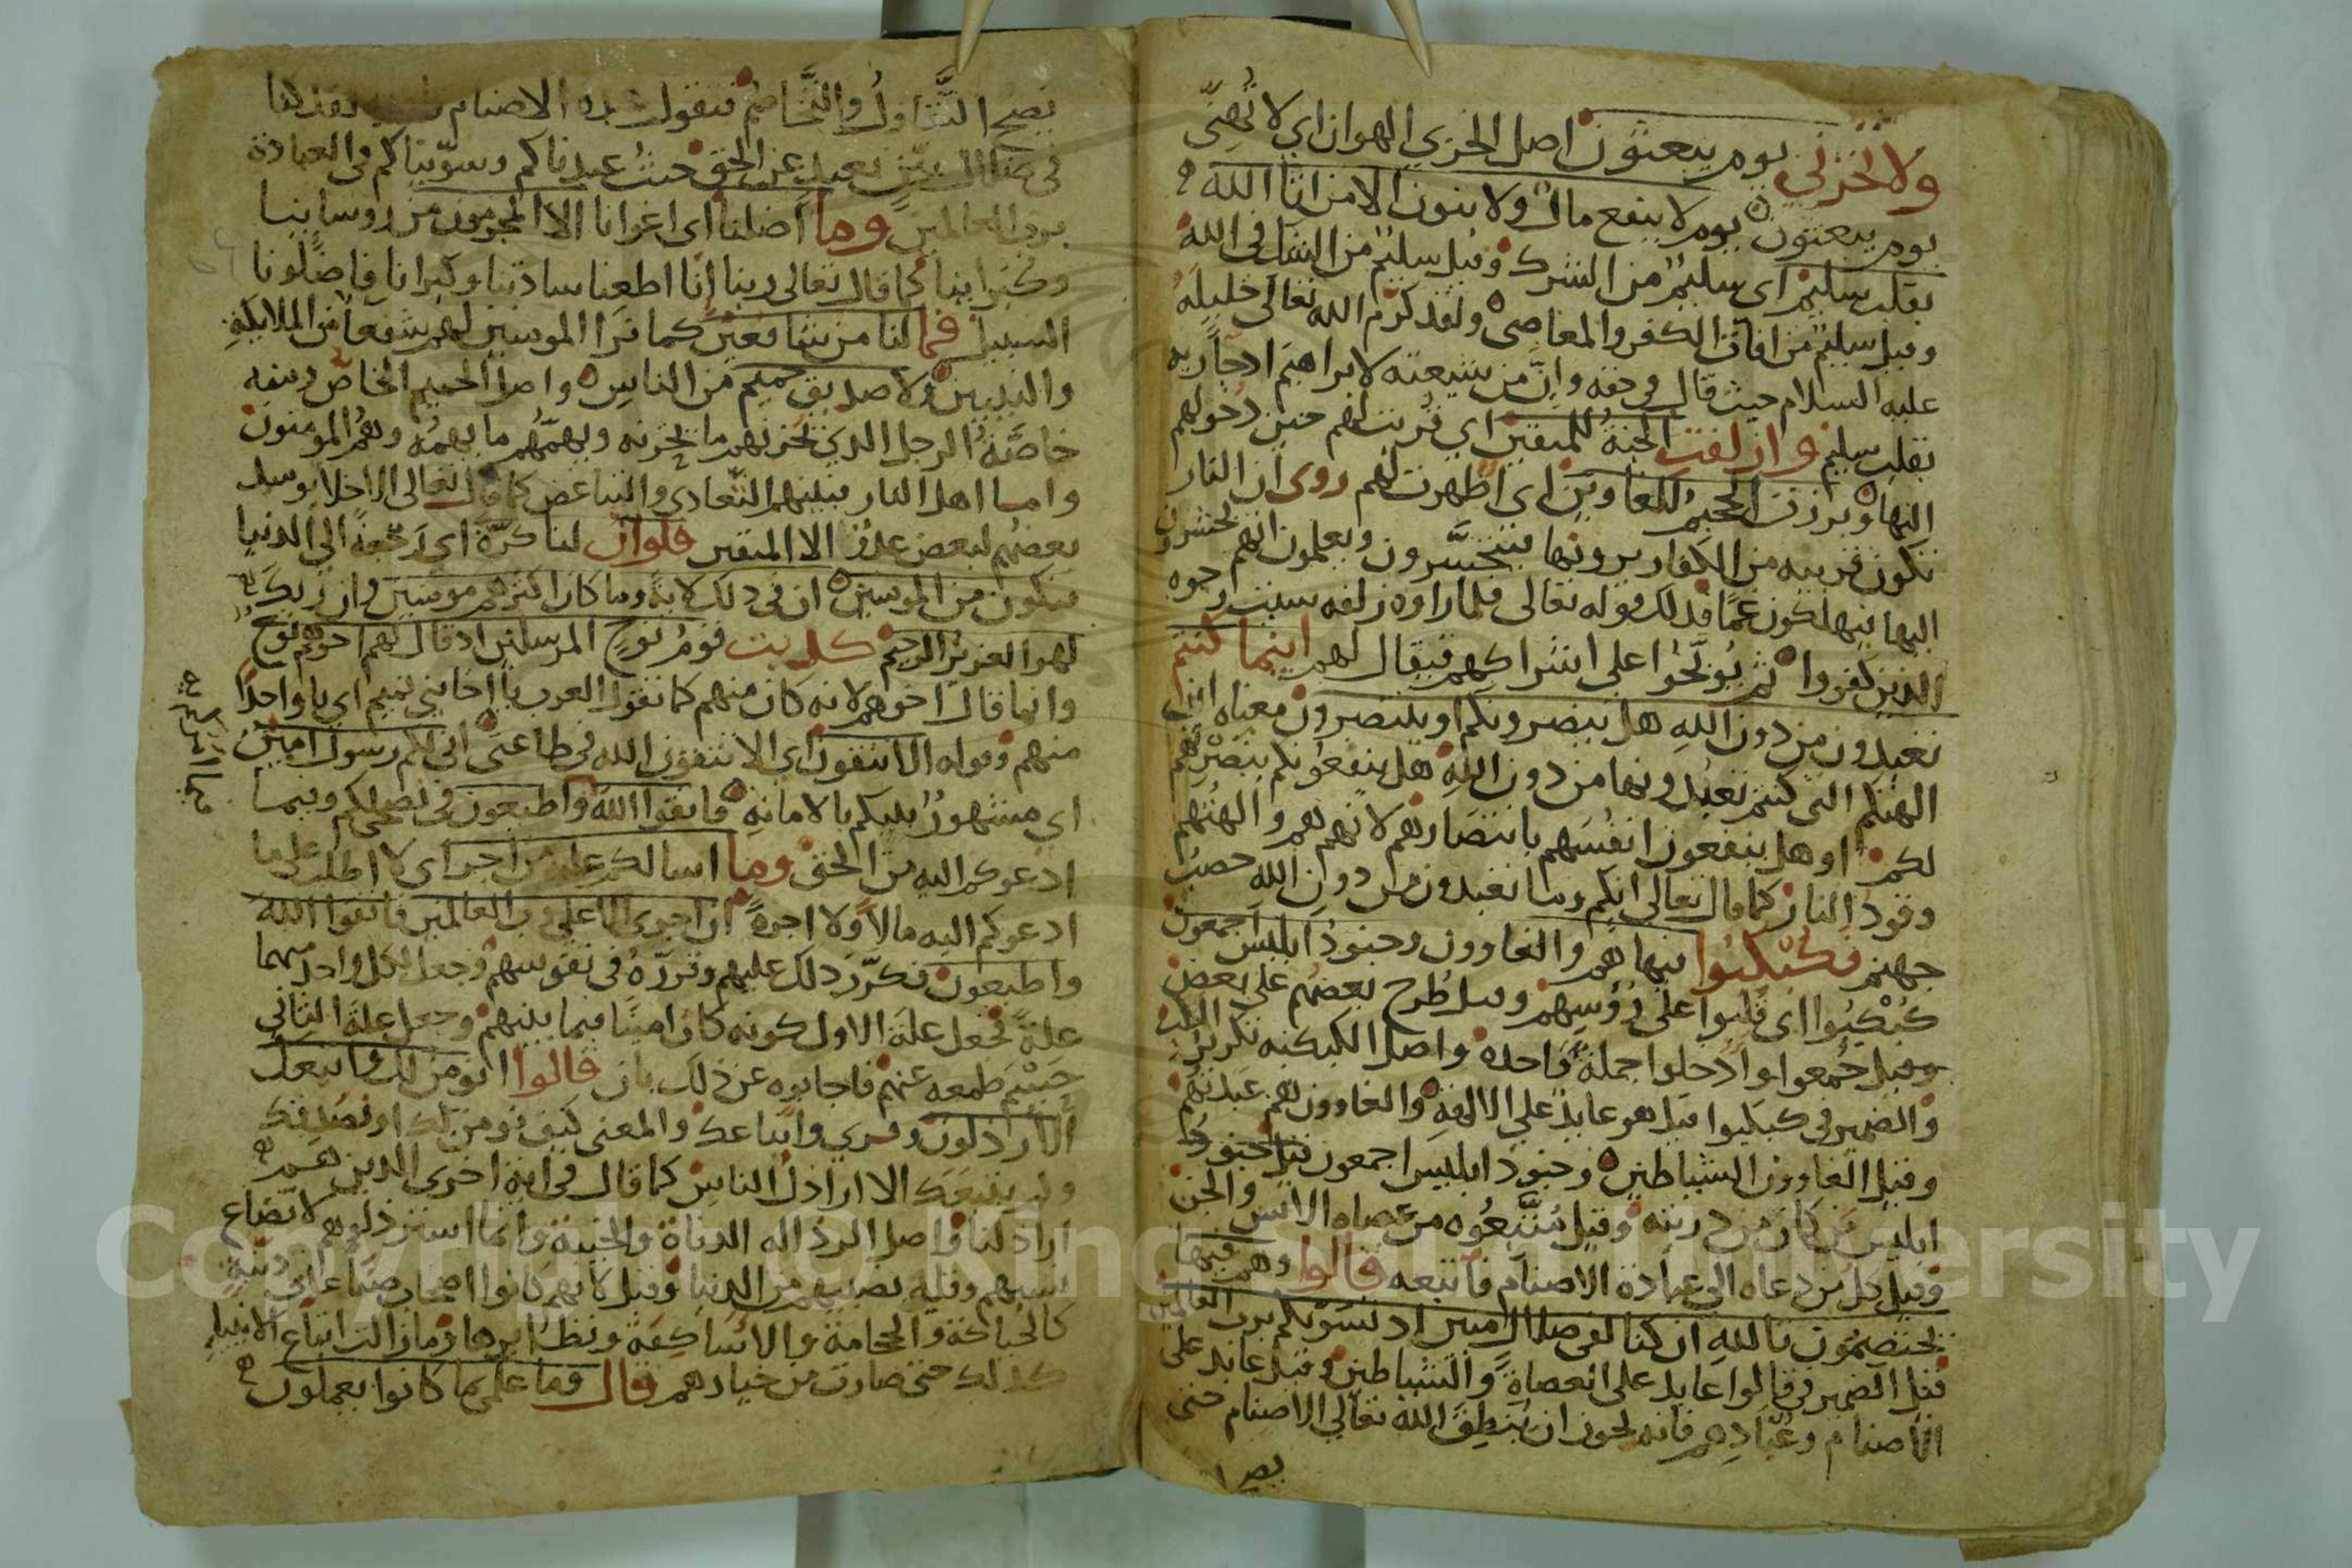 ولا تخزني يوم يبعثون اصل الخزي الهوان اي لا تهنّي
يوم يبعثون يوم لا ينفع مال ولا بنون الا من اتا الله
بقلب سليم اي سليم من الشرك وقيل سليم من الشك في الله
وقيل سليم من افات الكفر والمعاصي ولقد كرم الله تعالى خليله
عليه السلام حيث قال في حقه وانّ من شيعته لابراهيم اذ جا ربه
بقلب سليم وازلفت الجنة للمتقين اي قربت لهم حين دخولهم
اليها وبرزت الجحيم للغاوين اي اظهرت لهم روى ان النار
تكون قريبه من الكفار يرونها فيتحسّرون ويعلمون انهم يحشرون
اليها فيهلكون غما فذلك قوله تعالى فلما راوه زلفه سيت وجوه
الذين كفروا ثم يوبّخوا على اشراكهم فيقال لهم اينما كنتم
تعبدون من دون الله هل ينصرونكم او ينتصرون معناه اين
الهتكم التي كنتم تعبدونها من دون الله هل ينفعونكم بنصرتهم
لكم او هل ينفعون انفسهم بانتصارهم لانهم هم والهتهم
وقود النار كما قال تعالى انكم وما تعبدون من دون الله حصب
جهنم فكبكبوا فيها هم والغاوون وجنود ابليس اجمعون
كبكبوا اي قلبوا على رؤسهم وقيل طرح بعضهم على بعض
وقيل جمعوا وادخلوا جملة واحده واصل الكبكبه تكرير الكب
والضمير في كبكبوا قيل هو عايد على الالهة والغاوون هم عبدتهم
وقيل الغاوون الشياطين وجنود ابليس اجمعون قيل جنود
ابليس من كان من ذريته وقيل متّبعوه من عصاه الانس والجن
وقيل كل من دعاه الى عبادة الاصنام فاتبعه قالوا وهم فيها
يختصمون تالله ان كنا لفي ضلال مبين اذ نسويكم برب العالمين
قيل الضمير في قالوا عايد على العصاة والشياطين وقيل عايد على
الاصنام وعبّادهم فانه يجوز ان ينطق الله تعالى الاصنام حتى
يصح
يصح التقاول والتخاصم فتقول الاصنام
في ضلال مبين بعيد عن الحق حيث عبدناكم وسوّيناكم في العبادة
برب العالمين وما اضلنا اي اغوانا الا المجرمون من روساينا
وكبراينا كما قال تعالى ربنا انا اطعنا سادتنا وكبرانا فاضلونا
السبيل فما لنا من شافعين كما نرا المومنين لهم شفعا من الملايكه
والنبيين ولا صديق حميم من الناس واصل الحميم الخاص ومنه
خاصّة الرجل الذي يحزنهم ما يحزنه ويهمّهم ما يهمه وهم المومنون
واما اهل النار فبينهم التعادي والتباغض كما قال تعالى الاخلا يوميذ
بعضهم لبعض عدو الا المتقين فلو ان لنا كرّة اي رجعة الى الدنيا
فنكون من المومنين ان في ذلك لاية وما كان اكثرهم مومنين وان ربك
لهو العزيز الرحيم كذبت قوم نوح المرسلين اذ قال لهم اخوهم نوح
وانما قال اخوهم لانه كان منهم كما تقول العرب يا اخا بني تميم اي يا واحدا
منهم وقوله الا تتقون اي الا تتقون الله في طاعتي اني لكم رسول امين
اي مشهور فيكم بالامانه فاتقوا الله واطيعون في نصحي لكم وفيما
ادعوكم اليه من الحق وما اسالكم عليه من اجر اي لا اطلب على ما
ادعوكم اليه مالا ولا اجرة ان اجري الا على رب العالمين فاتقوا الله
واطيعون فكرّر ذلك عليهم وقرّره في نفوسهم وجعل لكل واحد منهما
علة فجعل علة الاول كونه كان امينا فيما بينهم وجعل علة الثاني
حسم طمعه عنهم فاجابوه عن ذلك بان قالوا انومن لك واتبعك
الارذلون وقري واتباعك والمعنى كيف نومن لك او نصدقك
ولم يتبعك الا اراذل الناس كما قال في اية اخرى الذين هم
اراذلنا واصل الرذاله الدناة والخسة وانما استرذلوهم لاتضاع
نسبهم وقلة نصيبهم من الدنيا وقيل لانهم كانوا اصحاب صنايع دنية
كالحياكة والحجامة والاساكفة ونظايرها وما زالت اتباع الانبيا
كذلك حتى صارت من خيارهم قال وما علمي بما كانوا يعملون
Copyright © King Saud University